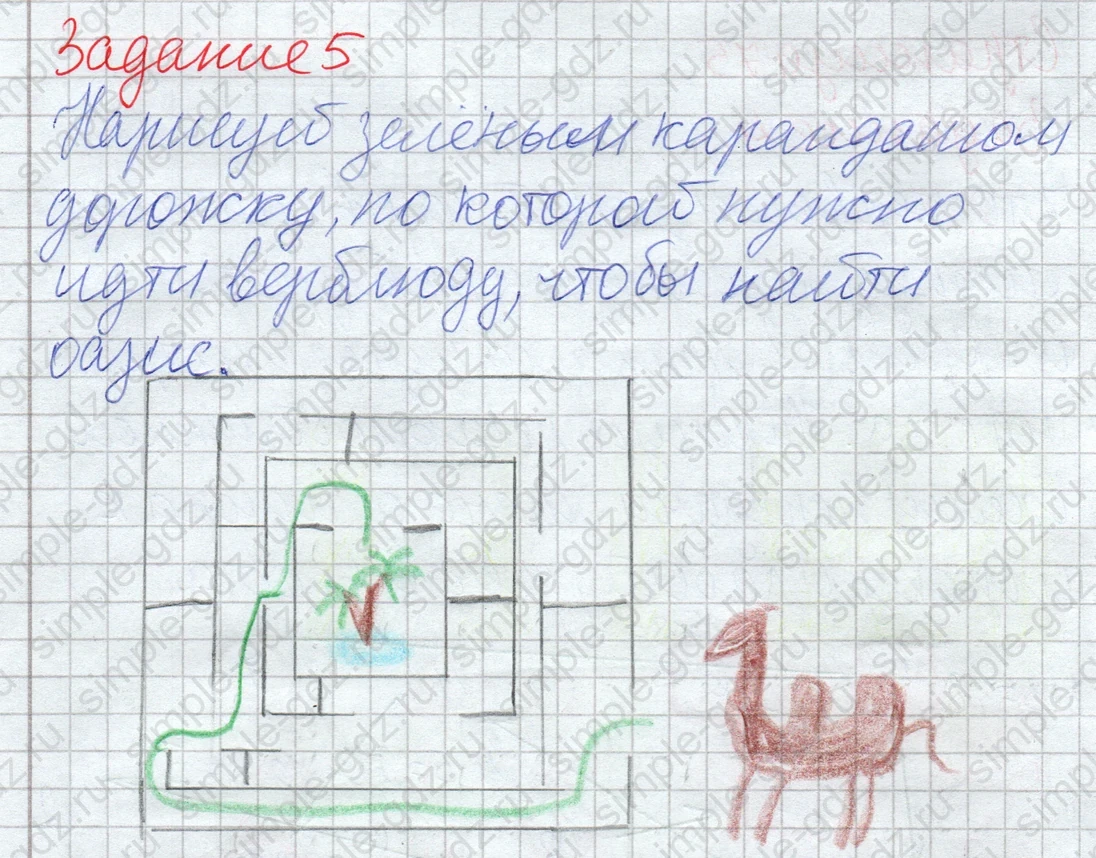 Задание 5
Нарисуй зелёным карандашом
дорожку, по которой нужно
идти верблюду, чтобы найти
оазис.
simple-gdz.ru